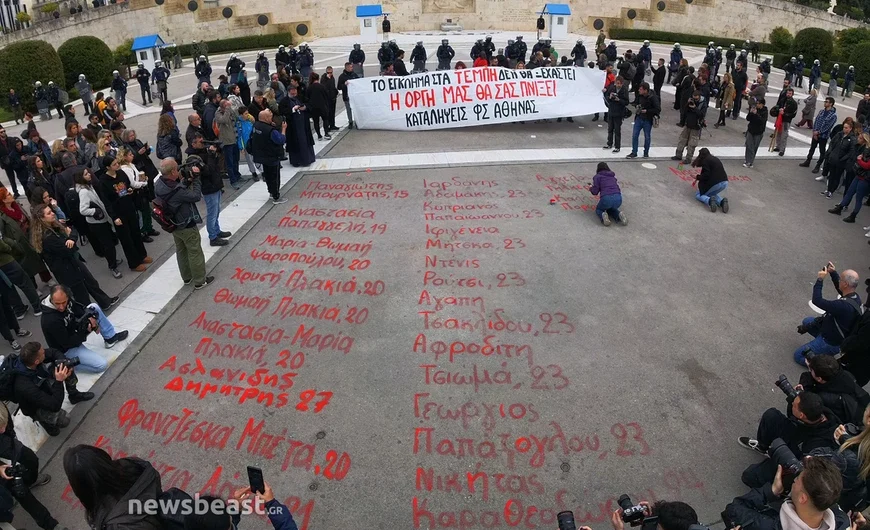 ΤΟ ΕΓΚΛΗΜΑ ΣΤΑ ΤΕΜΠΗ ΔΕΝ ΘΑ ΞΕΧΑΣΤΕΙ
Η ΟΡΓΗ ΜΑΣ ΘΑ ΣΑΣ ΠΝΙΞΕΙ!
ΚΑΤΑΛΗΨΕΙΣ ΦΣ ΑΘΗΝΑΣ
Παναγιώτης
Μπουρνάζης, 15
Αναστασία
Παπαγγελή, 19
Μαρία-Θωμαή
Ψαροπούλου, 20
Χρυσή Πλακιά, 20
Θωμαή Πλακιά, 20
Αναστασία-Μαρία
Πλακιά, 20
Ασλανίδης
Δημήτρης 27
Φραντζέσκα Μπέζα, 20
Ιορδάνης
Αδαμάκης, 23
Κυπριανός
Παπαϊωάννου, 23
Ιφιγένεια
Μήτσκα, 23
Ντενίς
Ρούτσι, 23
Αγάπη
Τσακλίδου, 23
Αφροδίτη
Τσιωμά, 23
Γεώργιος
Παπάζογλου, 23
Νικήτας
newsbeast.GR